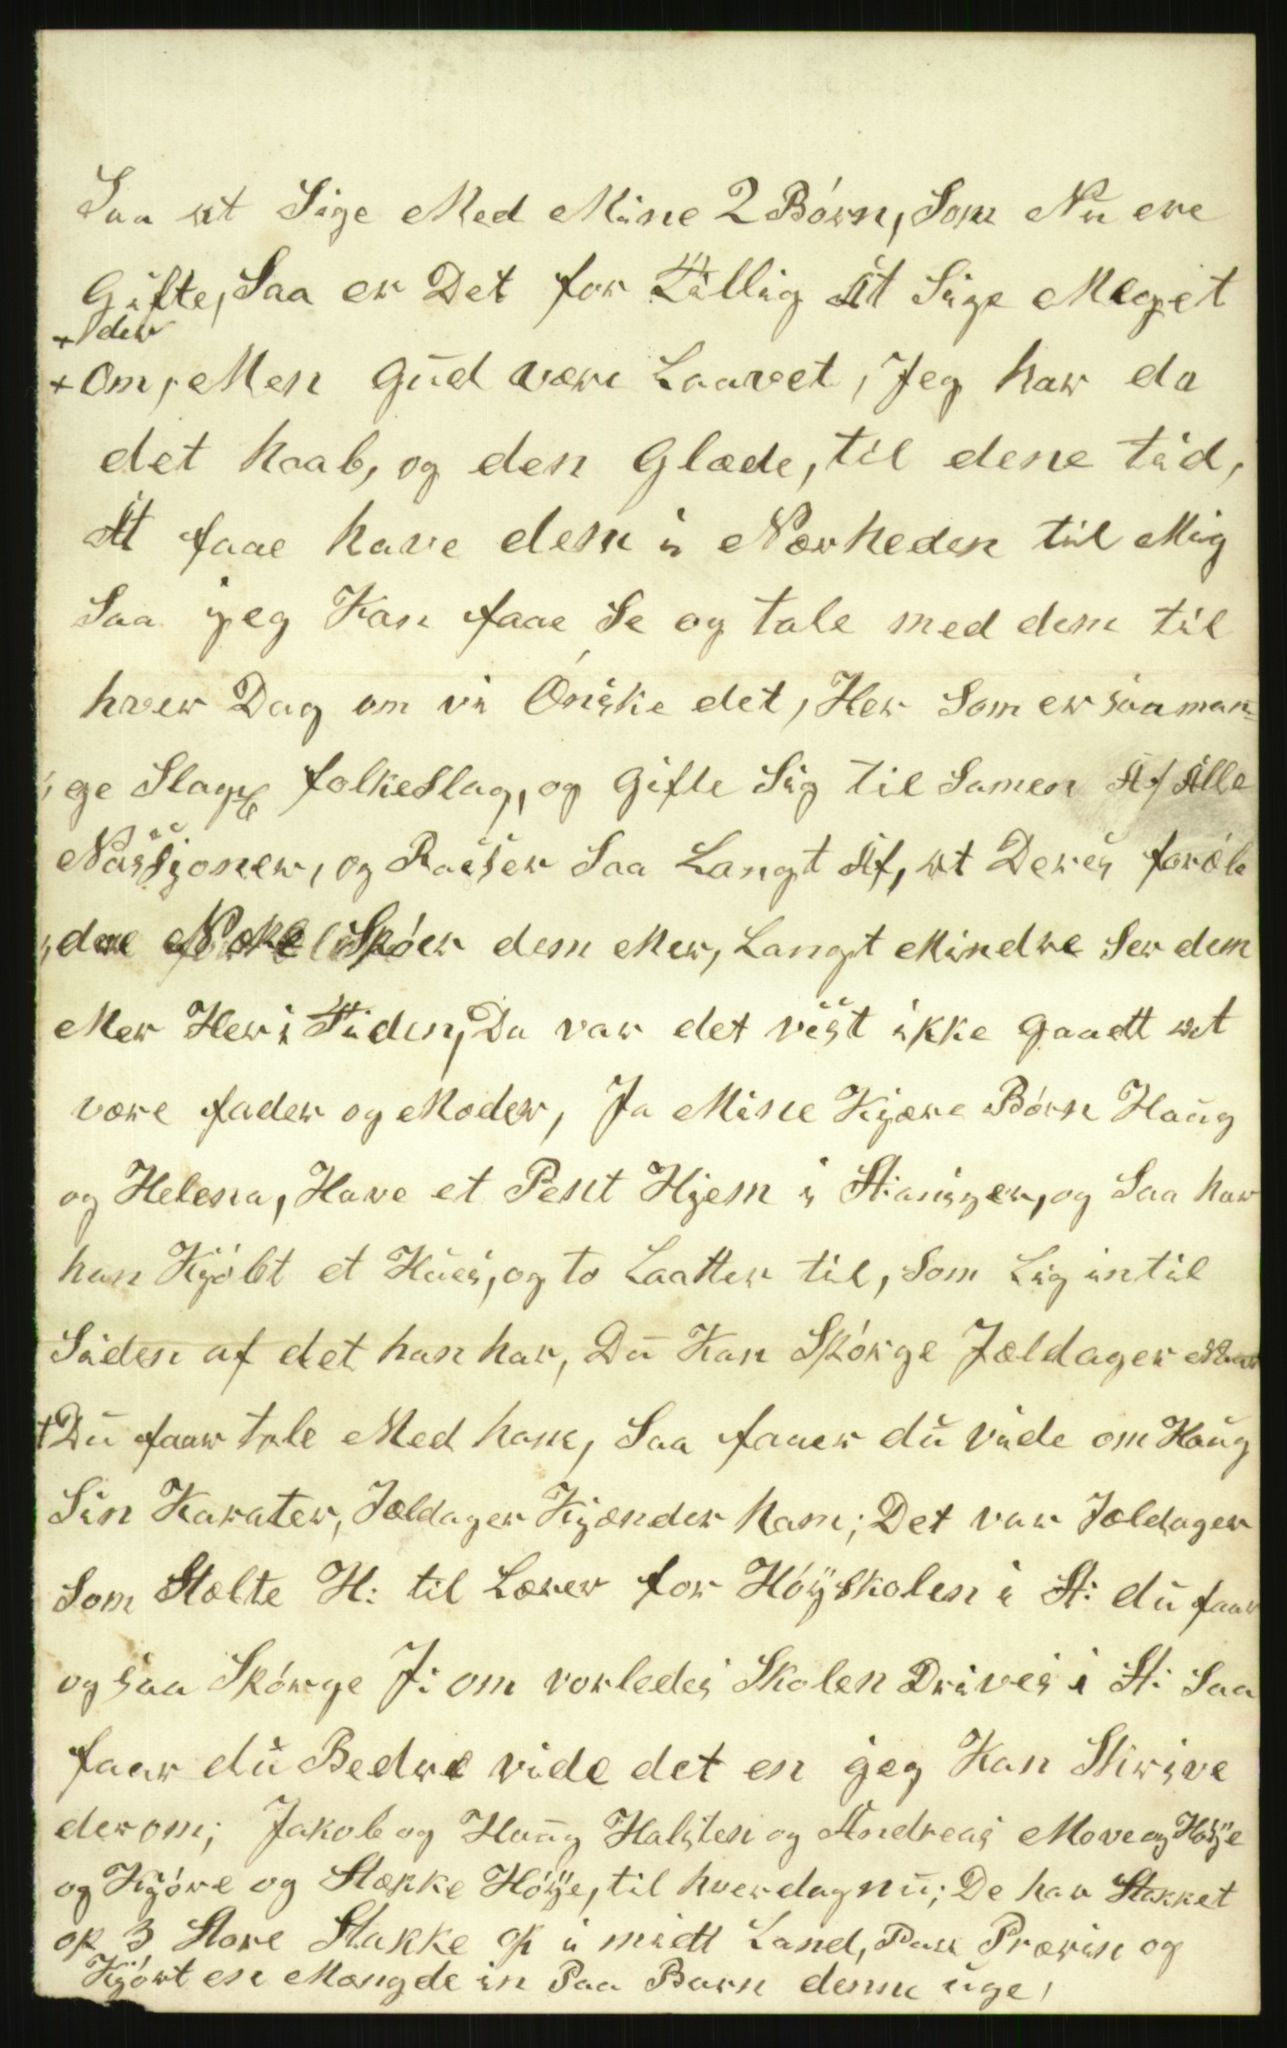 Saa at Sige Med Mine 2 Börn, Som Nu ere
Gifte, Saa er Det for Tillig At Sige Meget
+ der
+ Om, Men Gud være Laavet, Jeg har da
det haab, og den Glæde, til dene tid,
At faae have dem i Nærheden til Mig
Saa jeg Kan faae Se og tale med dem til
hver Dag om vi Ónske det, Her Som er saaman-
ge Slags folkeslag, og Gifte Sig til Samen Af Alle
Nassjoner, og Raiser Saa Langt Af, at Deres foræl-
dre Spór dem Mer, Langt Mindre Ser dem
Mer Her i Tiden, Da var det vist ikke Gaatt at
være fader og Moder, Ja Mine Kjære Börn Haug
og Helena, Have et Pent Hjem i Stanger, og Saa har
han Kjóbt et Hues, og to Laatter til, Som Lig intil
Siden af det han har, Du Kan Spórge Jældager Naar
Du faar tale Med ham, Saa faaer du vide om Haug
Sin Karater, Jældager Kjænder ham; Det var Jældager
Som Stælte H: til Lærer for Höyskolen i St: du faar
og saa Spórge J: om vorledes Skolen Drives i St: Saa
faar du Bedre vide det en jeg Kan Skrive
derom; Jakob og Haug Halsten og Andreas Move og Höye
og Kjóre og Stakke Höye, til hverdag nu; De har Stakket
op 3 Store Stakke op i midtt Land, Paa Prærin og
Kjórt en Mængde in Paa Barn denne uge,